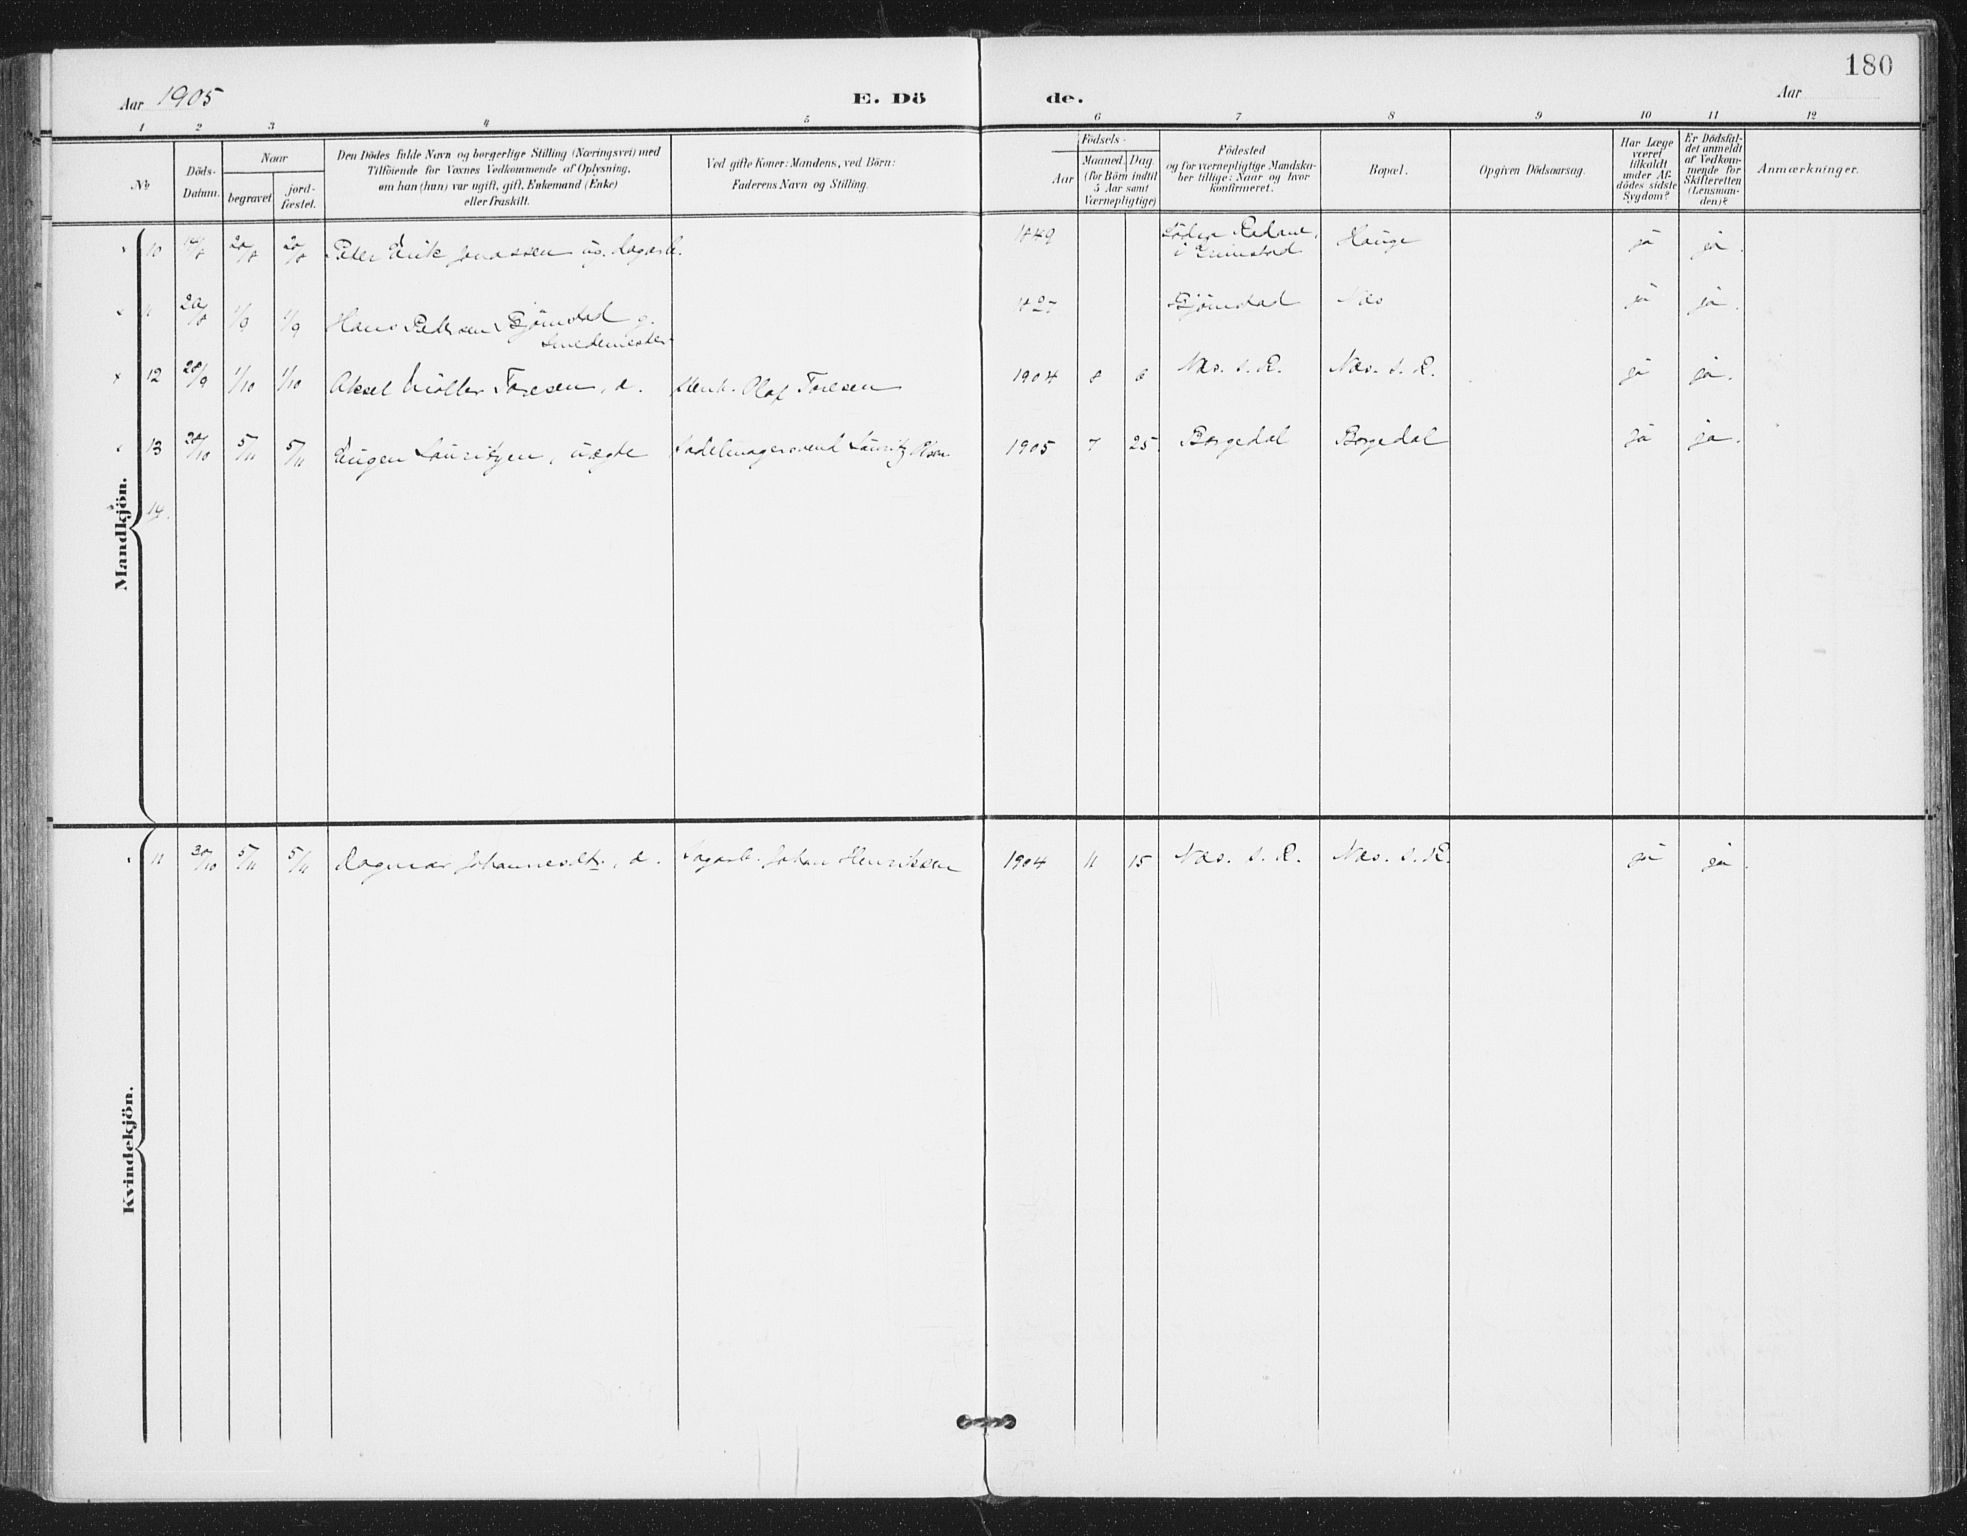 180
Aar 1905
E. Dö de.
Aar
1 2 3 4 5 6 7 8 9 10 11 12
No
Döds-Datum.
Naar
begravet
jord-fæstet.
Den Dödes fulde Navn og borgerlige Stilling (Næringsvei) med
Tilföiende for Voxnes Vedkommende af Oplysning,
om han (hun) var ugift, gift, Enkemand (Enke)
eller fraskilt.
Ved gifte Koner: Mandens, ved Börn:
Faderens Navn og Stilling.
Födsels-
Aar
Maaned. Dag.
(for Börn indtil
5 Aar samt
Værnepligtige)
Födested
og for værnepligtige Mandska-
ber tillige: Naar og hvor
konfirmeret.
Bopæl.
Opgiven Dödsaarsag.
Har Læge
været
tilkaldt
under Af-
dödes sidste
Sygdom?
Er Dödsfal-
det anmeldt
af Vedkom-
mende for
Skifteretten
(Lensman-
den)?
Anmærkninger.
Mandkjön.
10 20/8 20/8 Peter Erik Jonassen ug. Sagarb. 1849 i Grimstad Hauge ja ja.
11 20/8 1/9 1/9 Hans Pedersen Bjørnstad g. 1827 Bjørnstad Næs ja ja.
Smedemester
12 28/9 1/10 1/10 Aksel Møller Toresen, d. Olaf Toresen 1904 8 8 Næs. s. R. Næs. s. R. ja ja.
13 28/10 5/11 5/11 Eugen Lauritzen, uægte Sadelmagersvend Lauritz Olsen 1905 7 25 Borgedal Borgedal ja ja.
14.
Kvindekjön.
11 30/10 5/11 5/11 Dagmar Johannesdt., d. Sagarb. Johan Henriksen 1904 11 15 Næs. s. R. Næs. s. R. ja ja.